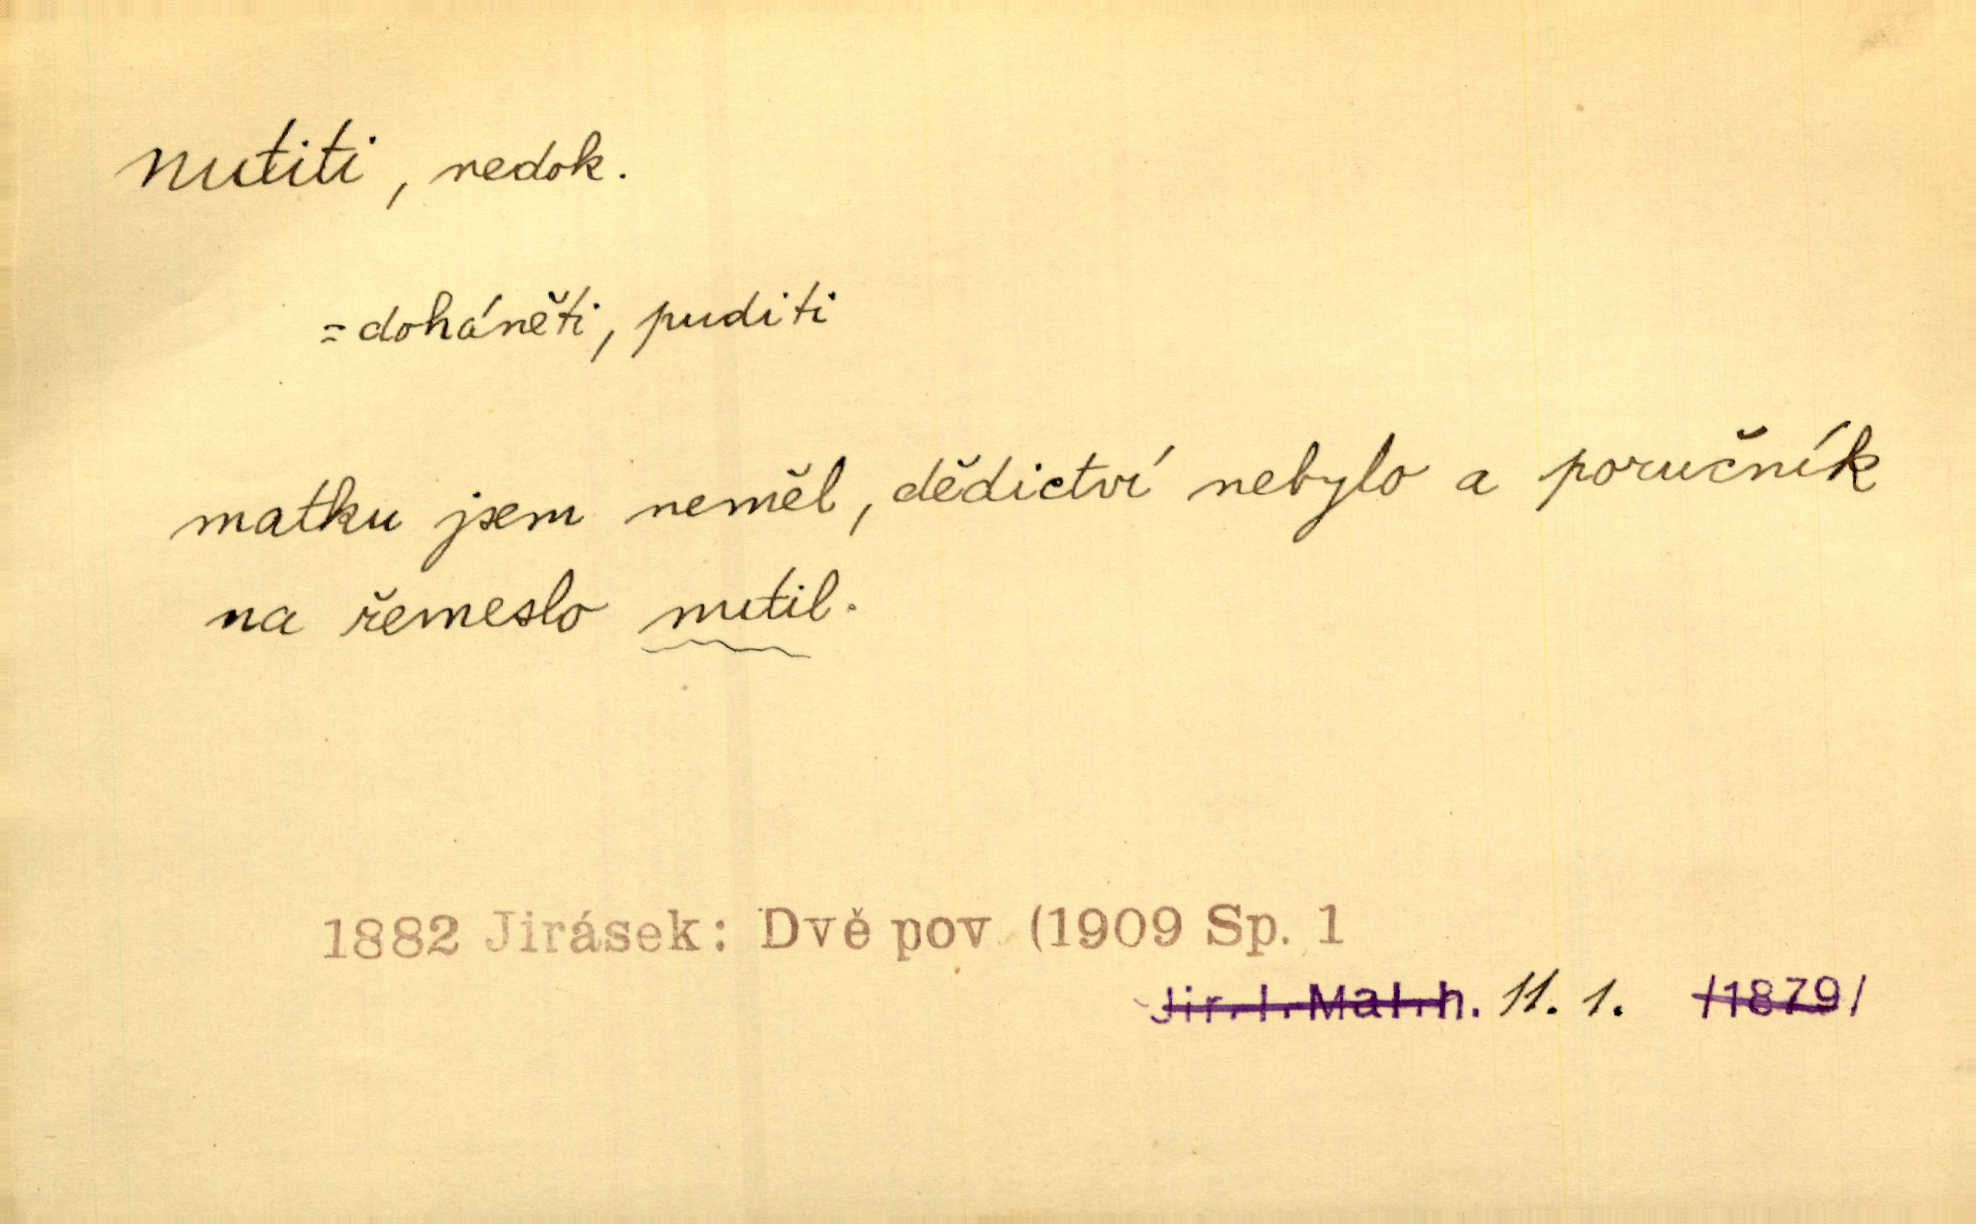 nutiti, nedok.
= doháněti, puditi
matku jsem neměl, dědictví nebylo a poručník
na řemeslo nutil.
1882 Jirásek: Dvě pov (1909 Sp. 1
Jir. I. Mal. h. 11. 1. /1879/